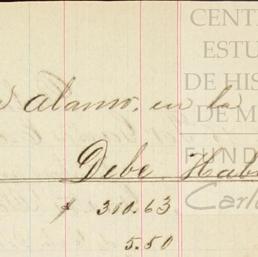 CENT
ESTU
DE HIS
DE M
Alamo, en la
FUND
Debe Hab
Carl
$ 300.63
5.50